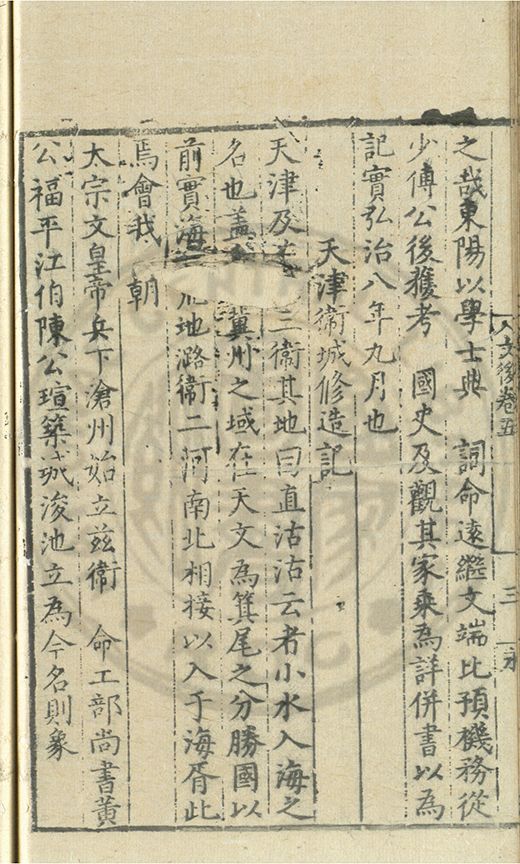 文後卷五
三
之哉東陽以學士典　詞命遠繼文端比預機務從
少傅公後獲考　國史及觀其家乘為詳併書以為
記實弘治八年九月也
天津衛城修造記
天津及三衛其地曰直沽沽云者小水入海之
名也盖冀州之域在天文為箕尾之分勝國以
前實海地潞衛二河南北相接以入于海胥此
焉會我　朝
太宗文皇帝兵下滄州始立茲衛　命工部尚書黃
公福平江伯陳公瑄築城浚池立為今名則象